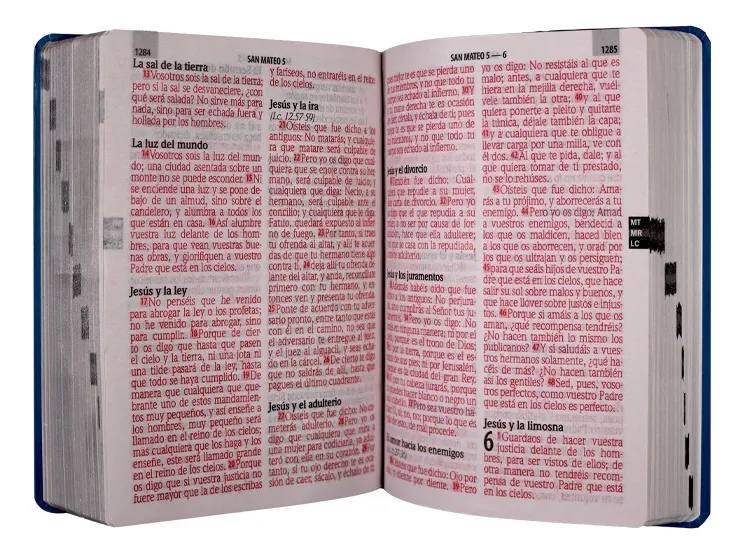 1284
SAN MATEO 5
La sal de la tierra
13 Vosotros sois la sal de la tierra;
pero si la sal se desvaneciere, ¿con
qué será salada? No sirve más para
nada, sino para ser echada fuera y
hollada por los hombres.
La luz del mundo
14 Vosotros sois la luz del mun-
do; una ciudad asentada sobre un
monte no se puede esconder. 15 Ni
se enciende una luz y se pone de-
bajo de un almud, sino sobre el
candelero, y alumbra a todos los
que están en casa. 16 Así alumbre
vuestra luz delante de los hom-
bres, para que vean vuestras bue-
nas obras, y glorifiquen a vuestro
Padre que está en los cielos.
Jesús y la ley
17 No penséis que he venido
para abrogar la ley o los profetas;
no he venido para abrogar, sino
para cumplir. 18 Porque de cier-
to os digo que hasta que pasen
el cielo y la tierra, ni una jota ni
una tilde pasará de la ley, hasta
que todo se haya cumplido. 19 De
manera que cualquiera que que-
brante uno de estos mandamien-
tos muy pequeños, y así enseñe a
los hombres, muy pequeño será
llamado en el reino de los cielos;
mas cualquiera que los haga y los
enseñe, este será llamado grande
en el reino de los cielos. 20 Porque
os digo que si vuestra justicia no
fuere mayor que la de los escribas
y fariseos, no entraréis en el reino
de los cielos.
Jesús y la ira
(Lc. 12.57-59)
21 Oísteis que fue dicho a los
antiguos: No matarás; y cualquie-
ra que matare será culpable de
juicio. 22 Pero yo os digo que cual-
quiera que se enoje contra su her-
mano, será culpable de juicio; y
cualquiera que diga: Necio, a su
hermano, será culpable ante el
concilio; y cualquiera que le diga:
Fatuo, quedará expuesto al infier-
no de fuego. 23 Por tanto, si traes
tu ofrenda al altar, y allí te acuer-
das de que tu hermano tiene algo
contra ti, 24 deja allí tu ofrenda de-
lante del altar, y anda, reconcíliate
primero con tu hermano, y en-
tonces ven y presenta tu ofrenda.
25 Ponte de acuerdo con tu adver-
sario pronto, entre tanto que estás
con él en el camino, no sea que
el adversario te entregue al juez,
y el juez al alguacil, y seas echa-
do en la cárcel. 26 De cierto te digo
que no saldrás de allí, hasta que
pagues el último cuadrante.
Jesús y el adulterio
27 Oísteis que fue dicho: No co-
meterás adulterio. 28 Pero yo os
digo que cualquiera que mira a
una mujer para codiciarla, ya adul-
teró con ella en su corazón. 29 Por
tanto, si tu ojo derecho te es oca-
sión de caer, sácalo, y échalo de ti;
SAN MATEO 5 — 6
1285
mejor te es que se pierda uno
tus miembros, y no que todo tu
cuerpo sea echado al infierno. 30 Y
tu mano derecha te es ocasión
caer, córtala, y échala de ti; pues
te es que se pierda uno de
miembros, y no que todo tu
sea echado al infierno.
Jesús y el divorcio
También fue dicho: Cual-
que repudie a su mujer,
carta de divorcio. 32 Pero yo
digo que el que repudia a su
a no ser por causa de for-
hace que ella adultere;
que se casa con la repudiada,
adulterio.
Jesús y los juramentos
Además habéis oído que fue
a los antiguos: No perjura-
cumplirás al Señor tus ju-
Pero yo os digo: No
en ninguna manera; ni por el
porque es el trono de Dios;
por la tierra, porque es el es-
de sus pies; ni por Jerusalén,
es la ciudad del gran Rey.
por tu cabeza jurarás, porque
puedes hacer blanco o negro un
37 Pero sea vuestro ha-
sí, sí; no, no; porque lo que es
de esto, de mal procede.
El amor hacia los enemigos
Oísteis que fue dicho: Ojo por
y diente por diente. 39 Pero
yo os digo: No resistáis al que es
malo; antes, a cualquiera que te
hiera en la mejilla derecha, vuél-
vele también la otra; 40 y al que
quiera ponerte a pleito y quitarte
la túnica, déjale también la capa;
41 y a cualquiera que te obligue a
llevar carga por una milla, ve con
él dos. 42 Al que te pida, dale; y al
que quiera tomar de ti prestado,
no se lo rehúses.
43 Oísteis que fue dicho: Ama-
rás a tu prójimo, y aborrecerás a tu
enemigo. 44 Pero yo os digo: Amad
a vuestros enemigos, bendecid a
los que os maldicen, haced bien
a los que os aborrecen, y orad por
los que os ultrajan y os persiguen;
45 para que seáis hijos de vuestro Pa-
dre que está en los cielos, que hace
salir su sol sobre malos y buenos, y
que hace llover sobre justos e injus-
tos. 46 Porque si amáis a los que os
aman, ¿qué recompensa tendréis?
¿No hacen también lo mismo los
publicanos? 47 Y si saludáis a vues-
tros hermanos solamente, ¿qué ha-
céis de más? ¿No hacen también
así los gentiles? 48 Sed, pues, voso-
tros perfectos, como vuestro Padre
que está en los cielos es perfecto.
Jesús y la limosna
6 1 Guardaos de hacer vuestra
justicia delante de los hom-
bres, para ser vistos de ellos; de
otra manera no tendréis recom-
pensa de vuestro Padre que está
en los cielos.
MT
MR
LC